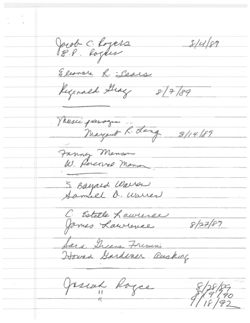 Jacob C. Rogers 8/4/89
E.P. Rogers
Eleonora R. Sears
Reginald Gray 8/7/89
Margaret R. Lang 8/14/89
Fanny Mason
W. Perceval Mason
S. Bayard Warren
Samuel D. Warren
C. Estelle Lawrence
James Lawrence 8/22/89
Sara Greene
Howard Gardiner Cushing
Josiah Royce 8/28/89
" 9/9/90
" 9/18/92